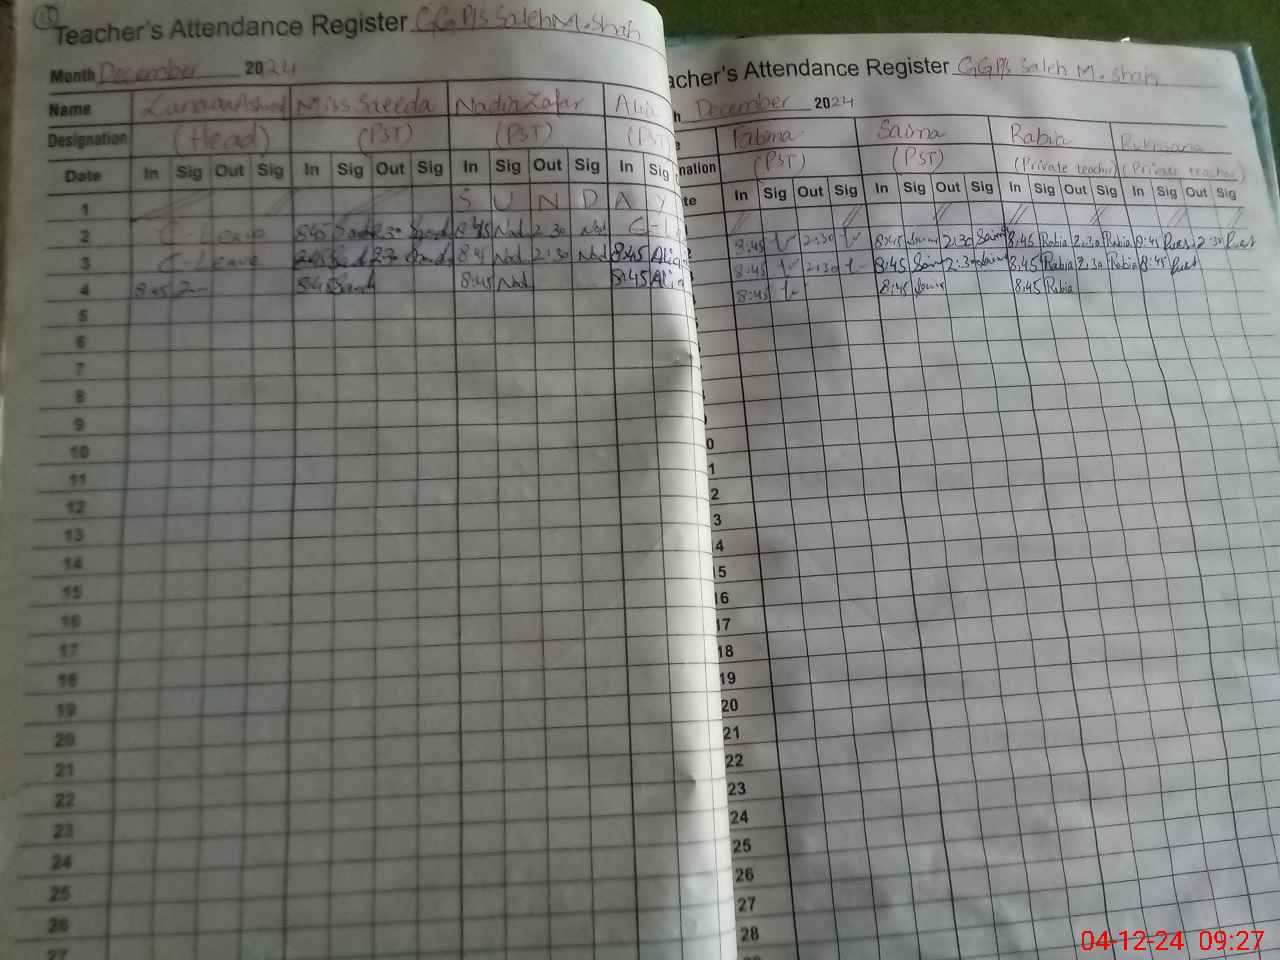 Teacher's Attendance Register GGP/s Saleh M.shah
Month December 2024
Name Miss Saeeda Nadia Zafar Alia
Designation (Head) (PST) (PST) (PST
Date In Sig Out Sig In Sig Out Sig In Sig Out Sig In Sig
1 S U N D A Y
2 C-Leave 8:45 2:30 8:45 Nad 2:30 Nad C-L
3 C-Leave 8:45 2:30 8:45 Nad 2:30 Nad 8:45 Alia
4 8:45 8:45 8:45 Nad 8:45 Alia
5
6
7
8
9
10
11
12
13
14
15
16
17
18
19
20
21
22
23
24
25
26
27
acher's Attendance Register GGP/s Saleh M. shah
h December 2024
e Saima Rabia Rukhsana
nation (PST) (PST) (Private teacher) (Private teacher)
te In Sig Out Sig In Sig Out Sig In Sig Out Sig In Sig Out Sig
8:45 2:30 8:45 2:30 Saim 8:45 Rabia 2:30 Rabia 8:45 2:30
8:45 2:30 8:45 Saim 2:30 8:45 Rabia 2:30 Rabia 8:45
8:45 8:45 8:45 Rabia
0
1
2
3
4
15
16
17
18
19
20
21
22
23
24
25
26
27
28
04-12-24 09:27